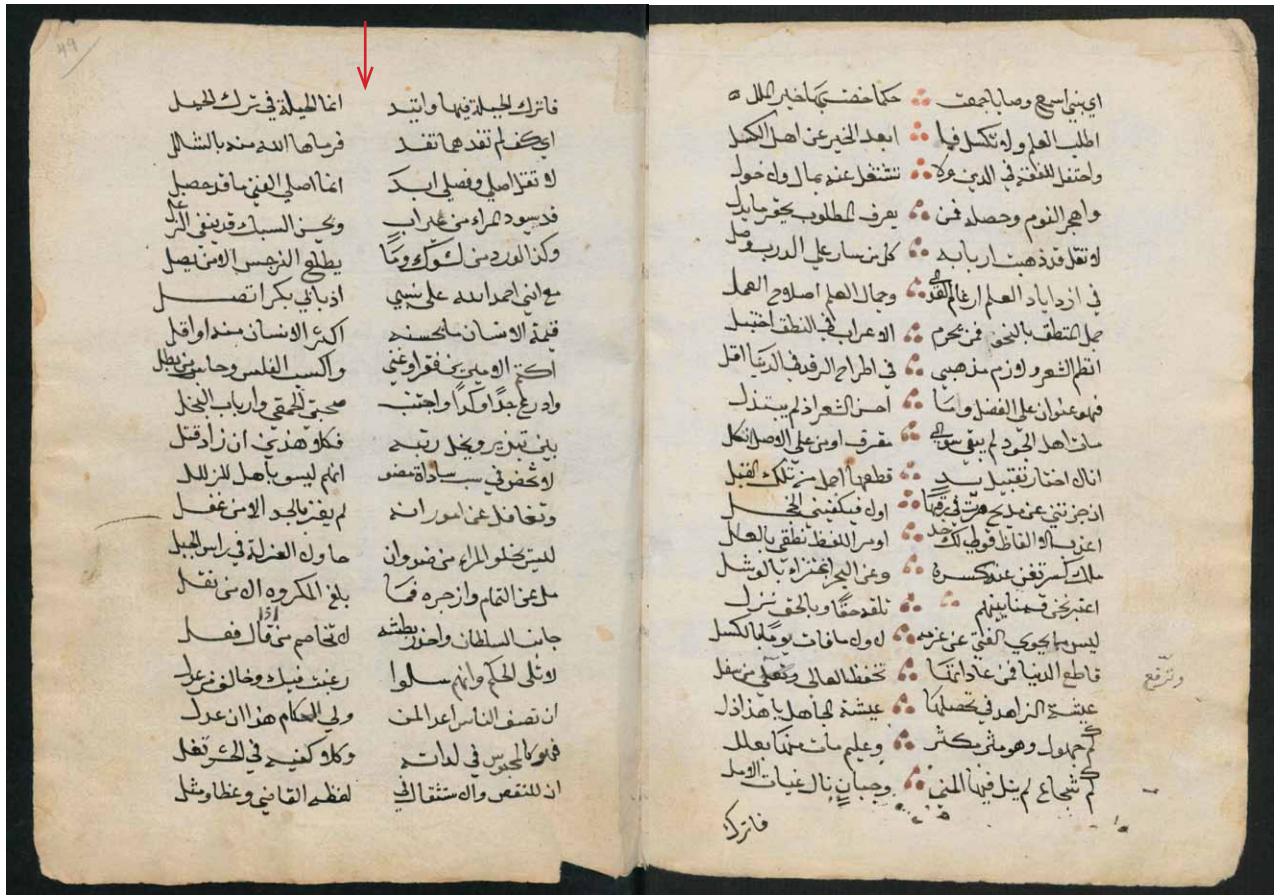 اي بني اسمع وصايا جمعت حكما خصت بها خير الملل
اطلب العلم ولا تكسل فما ابعد الخير عن اهل الكسل
واحتفل للفقه في الدين ولا تشتغل عنه بمال ولا خول
واهجر النوم وحصله فمن يعرف المطلوب يحقر ما بذل
لا تقل قد ذهبت اربابه كل من سار علي الدرب وصل
في ازدياد العلم ارغام العدي وجمال العلم اصلاح العمل
جمل المنطق بالنحو فمن يحرم الاعراب في النطق اختبل
انظم الشعر ولازم مذهبي في اطراح الرفد في الدنيا اقل
فهو عنوان علي الفضل وما احسن الشعر اذ لم يبتذل
مات اهل الجود لم يبقي سوي مقرف او من علي الاصل اتكل
انا لا اختار تقبيل يد قطعها اجمل من تلك القبل
ان جزتني عن مديح صرت في رقها اولا فيكفيني الخجل
اعذب الالفاظ قولي لك خذ وامر اللفظ نطقي بالعل
ملك كسر تغن عنه كسرة وعن البحر اجتزاء بالوشل
اعتبر نحن قسمنا بينهم تلقه حقًا وبالحق نزل
ليس ما يحوي الفتي عن عزمه لا ولا ما فات يومًا بالكسل
قاطع الدنيا فمن عاداتها تخفض العالي وتعلي من سفل
وترفع
عيشة الزاهد في تحصلها عيشة الجاهل يا هذا اذل
كم جهول وهو مثر مكثر وعليم مات منها بعلل
كم شجاع لم ينل فيها المني وجبان نال غيات الامل
فاترك
49
فاترك الحيلة فيها واتيد انما الحيلة في ترك الحيل
اي كف لم تفدهما تفد فرماها الله منه بالشلل
لا تقل اصلي وفصلي ابد انما اصلي الفتي ما قد حصل
قد يسود المراء من غير اب وبحسن السبك قد ينفي الزغل
وكذا الورد من الشوك وما يطلع النرجس الا من بصل
مع انني احمد الله علي نسبي اذ بابي بكر اتصل
قيمة الانسان ما يحسنه اكثر الانسان منه او اقل
اكتم الامرين فقرا وغني واكسب الفلس وحاسب من بطل
وادرع جدًا وكدًا واجتنب صحبة الحمقي وارباب البخل
بين تبذير وبخل رتبه فكلا هذين ان زاد قتل
لا تخض في سب ساداة مضو انهم ليسو باهل للزلل
وتغافل عن امور انه لم يفز بالجد الا من غفل
ليس يخلو المراء من ضد وان حاول العزلة في راس الجبل
مل عن النمام وازجره فما بلغ المكروه الا من نقل
جانب السلطان واحذر بطشه لا تخاصم من اذا قال فعل
لا تلي الحكم وانهم سلوا رغبت فيك وخالف من عذل
ان نصف الناس اعدا لمن ولي الحكام هذا ان عدل
فهو كالمحبوس في لداته وكلا كفيه في الحشر تغل
ان للنقص والاستثقال في لفظه القاضي وعظا ومثل